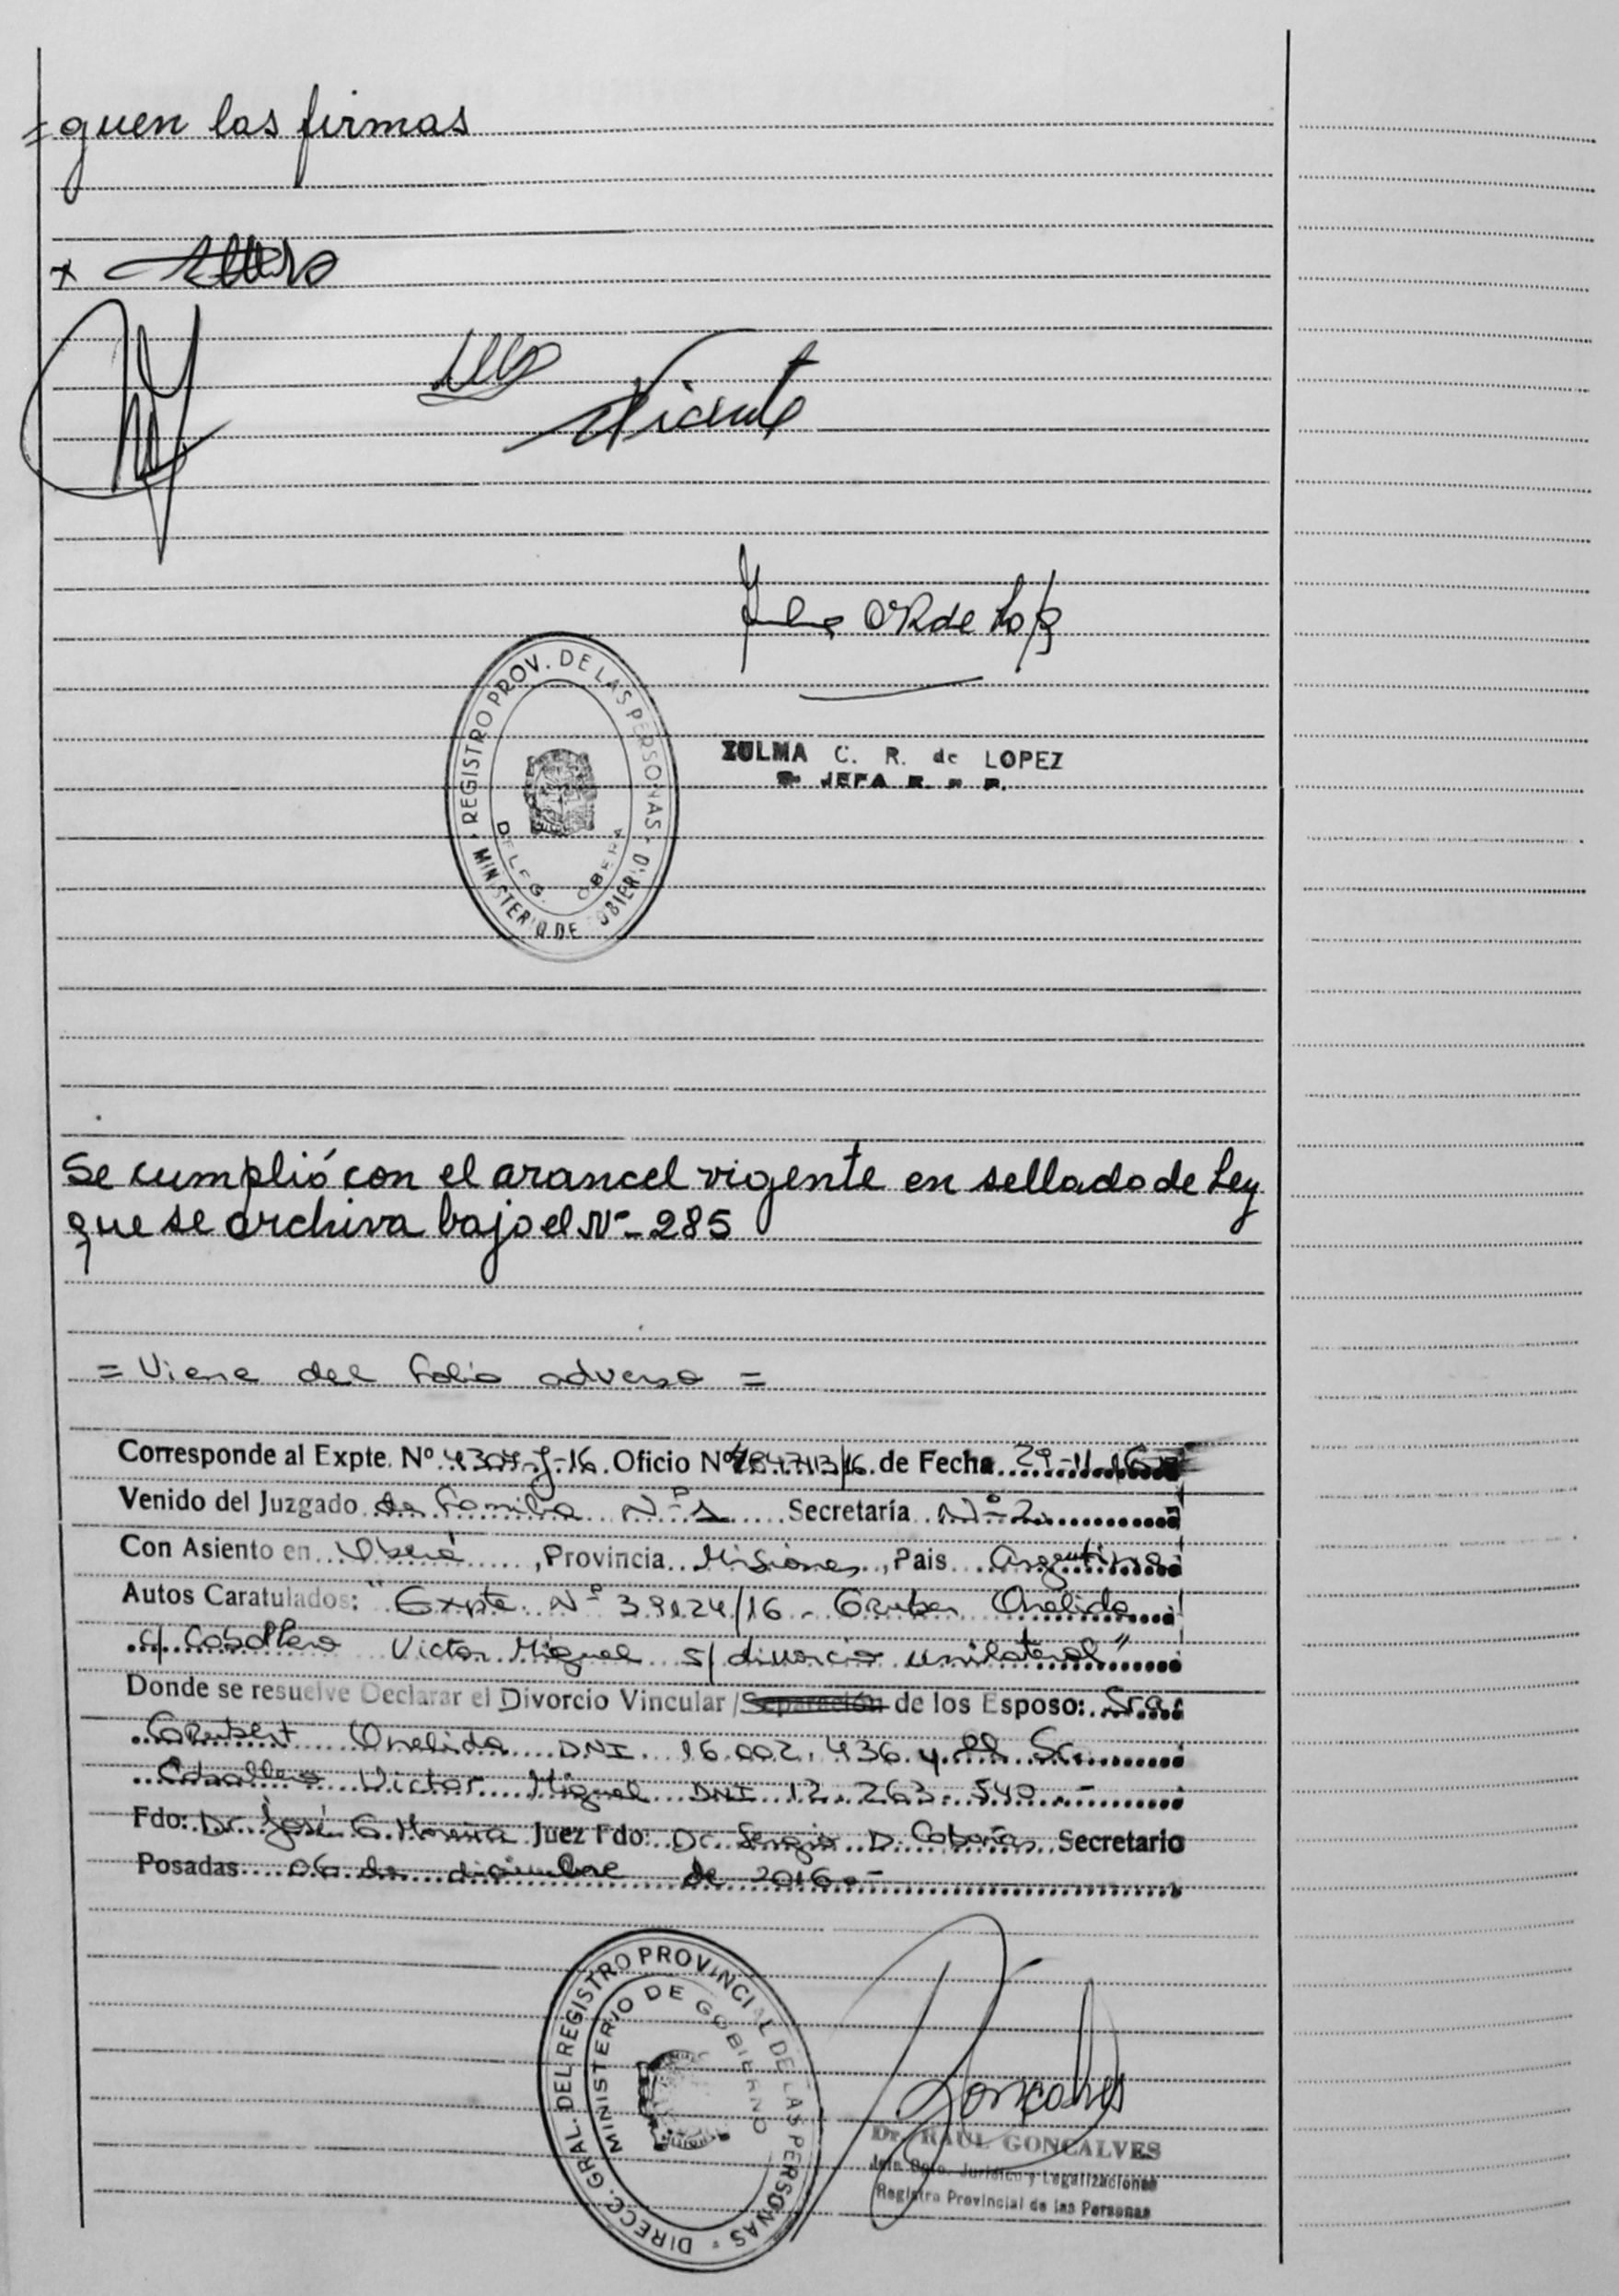 =guen las firmas
x
Vicente
REGISTRO PROV. DE LAS PERSONAS
MINISTERIO DE GOBIERNO
DELEG. OBERA
ZULMA C. R. de LOPEZ
JEFA R. P. P.
Se cumplió con el arancel vigente en sellado de Ley
que se archiva bajo el Nº-285
= Viene del folio adverso =
Corresponde al Expte. Nº Oficio Nº de Fecha 29-11-16
Venido del Juzgado de Familia Nº 1 Secretaría Nº 2
Con Asiento en Oberá, Provincia Misiones, Pais Argentina
Autos Caratulados: "Expte. Nº /16 - Gruber Onelida
c/ Caballero Victor Miguel s/ divorcio unilateral"
Donde se resuelve Declarar el Divorcio Vincular / Separación de los Esposo: Sra.
Grubert Onelida DNI. 16.002.436 y el Sr.
Caballero Victor Miguel DNI 12.263.540.-
Fdo: Dr. José G. Moreira Juez Fdo: Dr. Sergio D. Secretario
Posadas 06 de diciembre de 2016.-
DIRECC. GRAL. DEL REGISTRO PROVINCIAL DE LAS PERSONAS
MINISTERIO DE GOBIERNO
Goncalves
Dr. RAUL GONCALVES
Jefe Dpto. Jurídico y Legalizaciones
Registro Provincial de las Personas